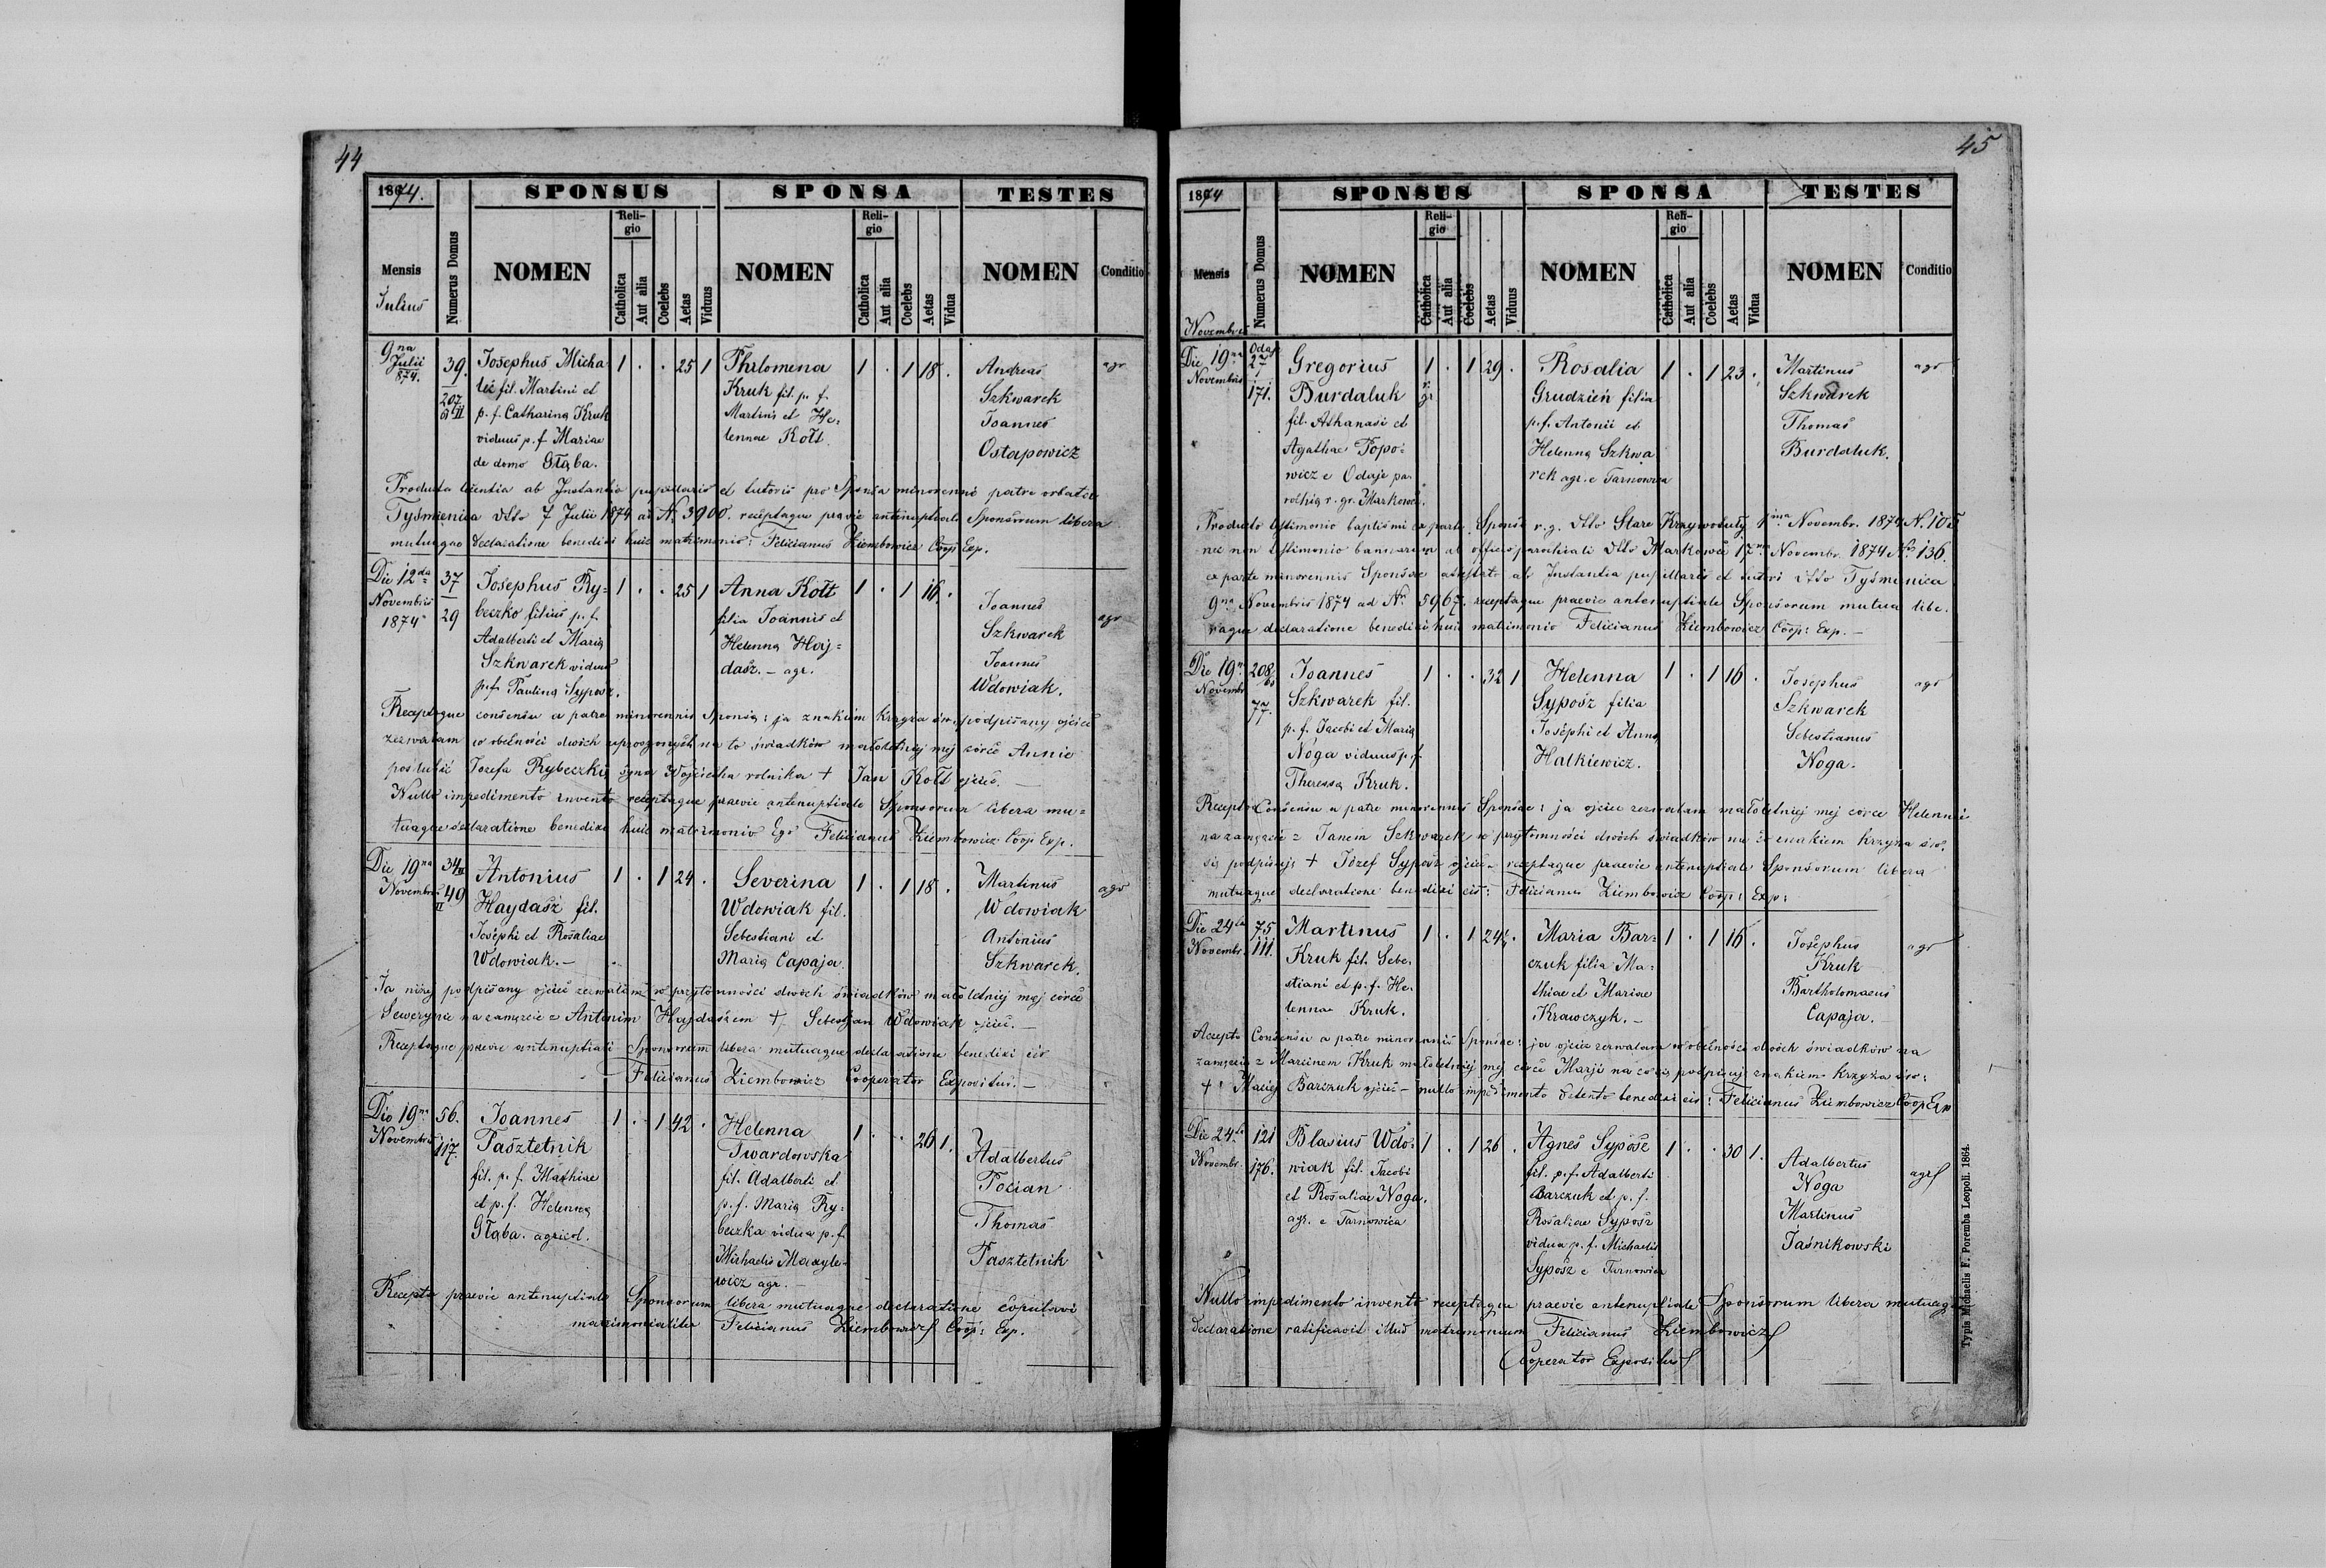 44
1874.
SPONSUS
SPONSA
TESTES
Mensis
Julius
Numerus Domus
NOMEN
Religio
Catholica
Aut alia
Coelebs
Aetas
Viduus
NOMEN
Religio
Catholica
Aut alia
Coelebs
Aetas
Vidua
NOMEN
Conditio
9na Julii 874.
39. 207
Josephus Micha
1 . . 25 1
Philomena
1 . 1 18 .
Andreas
agr
fil. Martini et
p. f. Catharina Kruk
viduus p. f Mariae
de domo Głąba.
Kruk fil. p. f.
Martini et He-
lennae Kołt.
Szkwarek
Joannes
Ostapowicz
Producta licentia ab Instantia pupillaris et tutoris pro Sponsa minorenni patre orbata
Tyśmienica ddto 7 Julii 1874 ad N. 3900. receptaque praevie antenuptiali Sponsorum libera
mutuaque declaratione benedixi huic matrimonio: Felicianus Ziembowicz Coop Exp.
Die 12da Novembris 1874
37 29
Josephus Ry-
1 . . 25 1
Anna Kołt
1 . 1 16. .
Joannes
agr
beczko filius p. f.
Adalberti et Maria
Szkwarek viduus
p.f. Paulina Syposz.
filia Joannis et
Helenna Haj-
dasz. - agr.
Szkwarek
Joannes
Wdowiak.
Receptoque consensu a patre minorennis Sponsa: ja znakiem krzyża św. podpisany ojciec
zezwalam w obecności dwóch uproszonych na to świadków małoletniej mej córce Annie
poślubić Józefa Rybeczkę syna Wojciecha rolnika + Jan Kołt ojciec. -
Nullo impedimento invento receptaque praevie antenuptiale Sponsorum libera mu-
tuaque declaratione benedixi huic matrimonio Ego Felicianus Ziembowicz Coop Exp.
Die 19na Novembris
34 49
II
Antonius
1 . 1 24 .
Severina
1 . 1 18 .
Martinus
agr
Haydasz fil.
Josephi et Rosaliae
Wdowiak. -
Wdowiak fil.
Sebestiani et
Maria Capaja.
Wdowiak
Antonius
Szkwarek.
Ja niżej podpisany ojciec zezwalam w przytomności dwóch świadków małoletniej mej córce
Sewerynie na zamęście z Antonim Hajdaszem + Sebestjan Wdowiak ojciec. -
Receptaque praevie antenuptiali Sponsorum libera mutuaque declaratione benedixi eis
Felicianus Ziembowicz Cooperator Expositus. -
Die 19na Novembris
56. 117.
Joannes
1 . 1 42 .
Helenna
1 . . 26 1.
Adalbertus
Pasztetnik
fil. p. f. Mathiae
et p. f. Helenna
Głąba. agricol.
Twardowska
fil. Adalberti et
p. f. Maria Ry-
beczka vidua p. f.
Michaelis Maxyle-
wicz agr. -
Pocian
Thomas
Pasztetnik
Recepta praevie antenuptiale Sponsorum libera mutuaque declaratione copulavi
matrimonialiter Felicianus Ziembowicz Coop: Exp.
45
1874
SPONSUS
SPONSA
TESTES
Mensis
Novembris
Numerus Domus
NOMEN
Religio
Catholica
Aut alia
Coelebs
Aetas
Viduus
NOMEN
Religio
Catholica
Aut alia
Coelebs
Aetas
Vidua
NOMEN
Conditio
Die 19na Novembris
Odaje 27 171.
Gregorius
1 . 1 29 .
Rosalia
1 . 1 23 .
Martinus
agr
Burdaluk
r. gr
fil. Athanasi et
Agathae Popo-
wicz e Odaje pa-
rochia r. gr. Markowce.
Grudzień filia
p. f. Antonii et
Helenna Szkwa
rek agr. e Tarnowica
Szkwarek
Thomas
Burdaluk.
Producto testimonio baptismi ex parte Sponsi r. g. ddto Stare Krzywotuły 1ma Novembr. 1874 N. 105
nec non testimonio bannorum ab officio parochiali ddto Markowce 17ma Novembr. 1874 No 136.
ex parte minorennis Sponsae ab Instantia pupillaris et tutori ddto Tyśmienica
9na Novembris 1874 ad Nr 5967. receptaque praevie antenuptiale Sponsorum mutua libe-
raque declaratione benedixi huic matrimonio Felicianus Ziembowicz Coop: Exp. -
Die 19na Novembr.
208 77.
Joannes
1 . . 32 1
Helenna
1 . 1 16 .
Josephus
agr
Szkwarek fil.
p. f. Jacobi et Maria
Noga viduus p. f.
Theressa Kruk.
Syposz filia
Josephi et Anna
Hałkiewicz.
Szkwarek
Sebestianus
Noga.
Recepto Consensu a patre minorennis Sponsae: ja ojciec zezwalam małoletniej mej córce Helennie
na zamęście z Janem Szkwarek w przytomności dwóch świadków na co znakiem krzyża św.
się podpisuję + Józef Syposz ojciec - receptaque praevie antenuptiali Sponsorum libera
mutuaque declaratione benedixi eis: Felicianus Ziembowicz Coop: Exp:
Die 24ta Novembr.
75 111.
Martinus
1 . 1 24½ .
Maria Bar-
1 . 1 16 .
Josephus
agr
Kruk fil. Sebe-
stiani et p. f. He-
lennae Kruk.
czuk filia Ma-
thiae et Mariae
Krawczyk. -
Kruk
Bartholomaeus
Capaja. -
Acepto Consensu a patre minorennis Sponsae: ja ojciec zezwalam w obecności dwóch świadków na
zamęście z Marcinem Kruk małoletniej mej córce Marji na co się podpisuję znakiem krzyża św:
+ Maciej Barczuk ojciec - nullo impedimento detento benedixi eis: Felicianus Ziembowicz Coop Exp
Die 24ta Novembr.
121 176.
Blasius Wdo-
1 . 1 26 .
Agnes Syposz
1 . . 30 1.
Adalbertus
agr
wiak fil. Jacobi
et Rosaliae Noga.
agr. e Tarnowica
fil. p. f. Adalberti
Barczuk et p. f.
Rosaliae Syposz
vidua p. f. Michaelis
Syposz e Tarnowica
Noga
Martinus
Jaśnikowski
Nullo impedimento invento receptaque praevie antenuptiale Sponsorum libera mutuaque
declaratione ratificavit illud matrimonium Felicianus Ziembowicz
Cooperator Expositus
Typis Michaelis F. Poremba Leopoli. 1864.